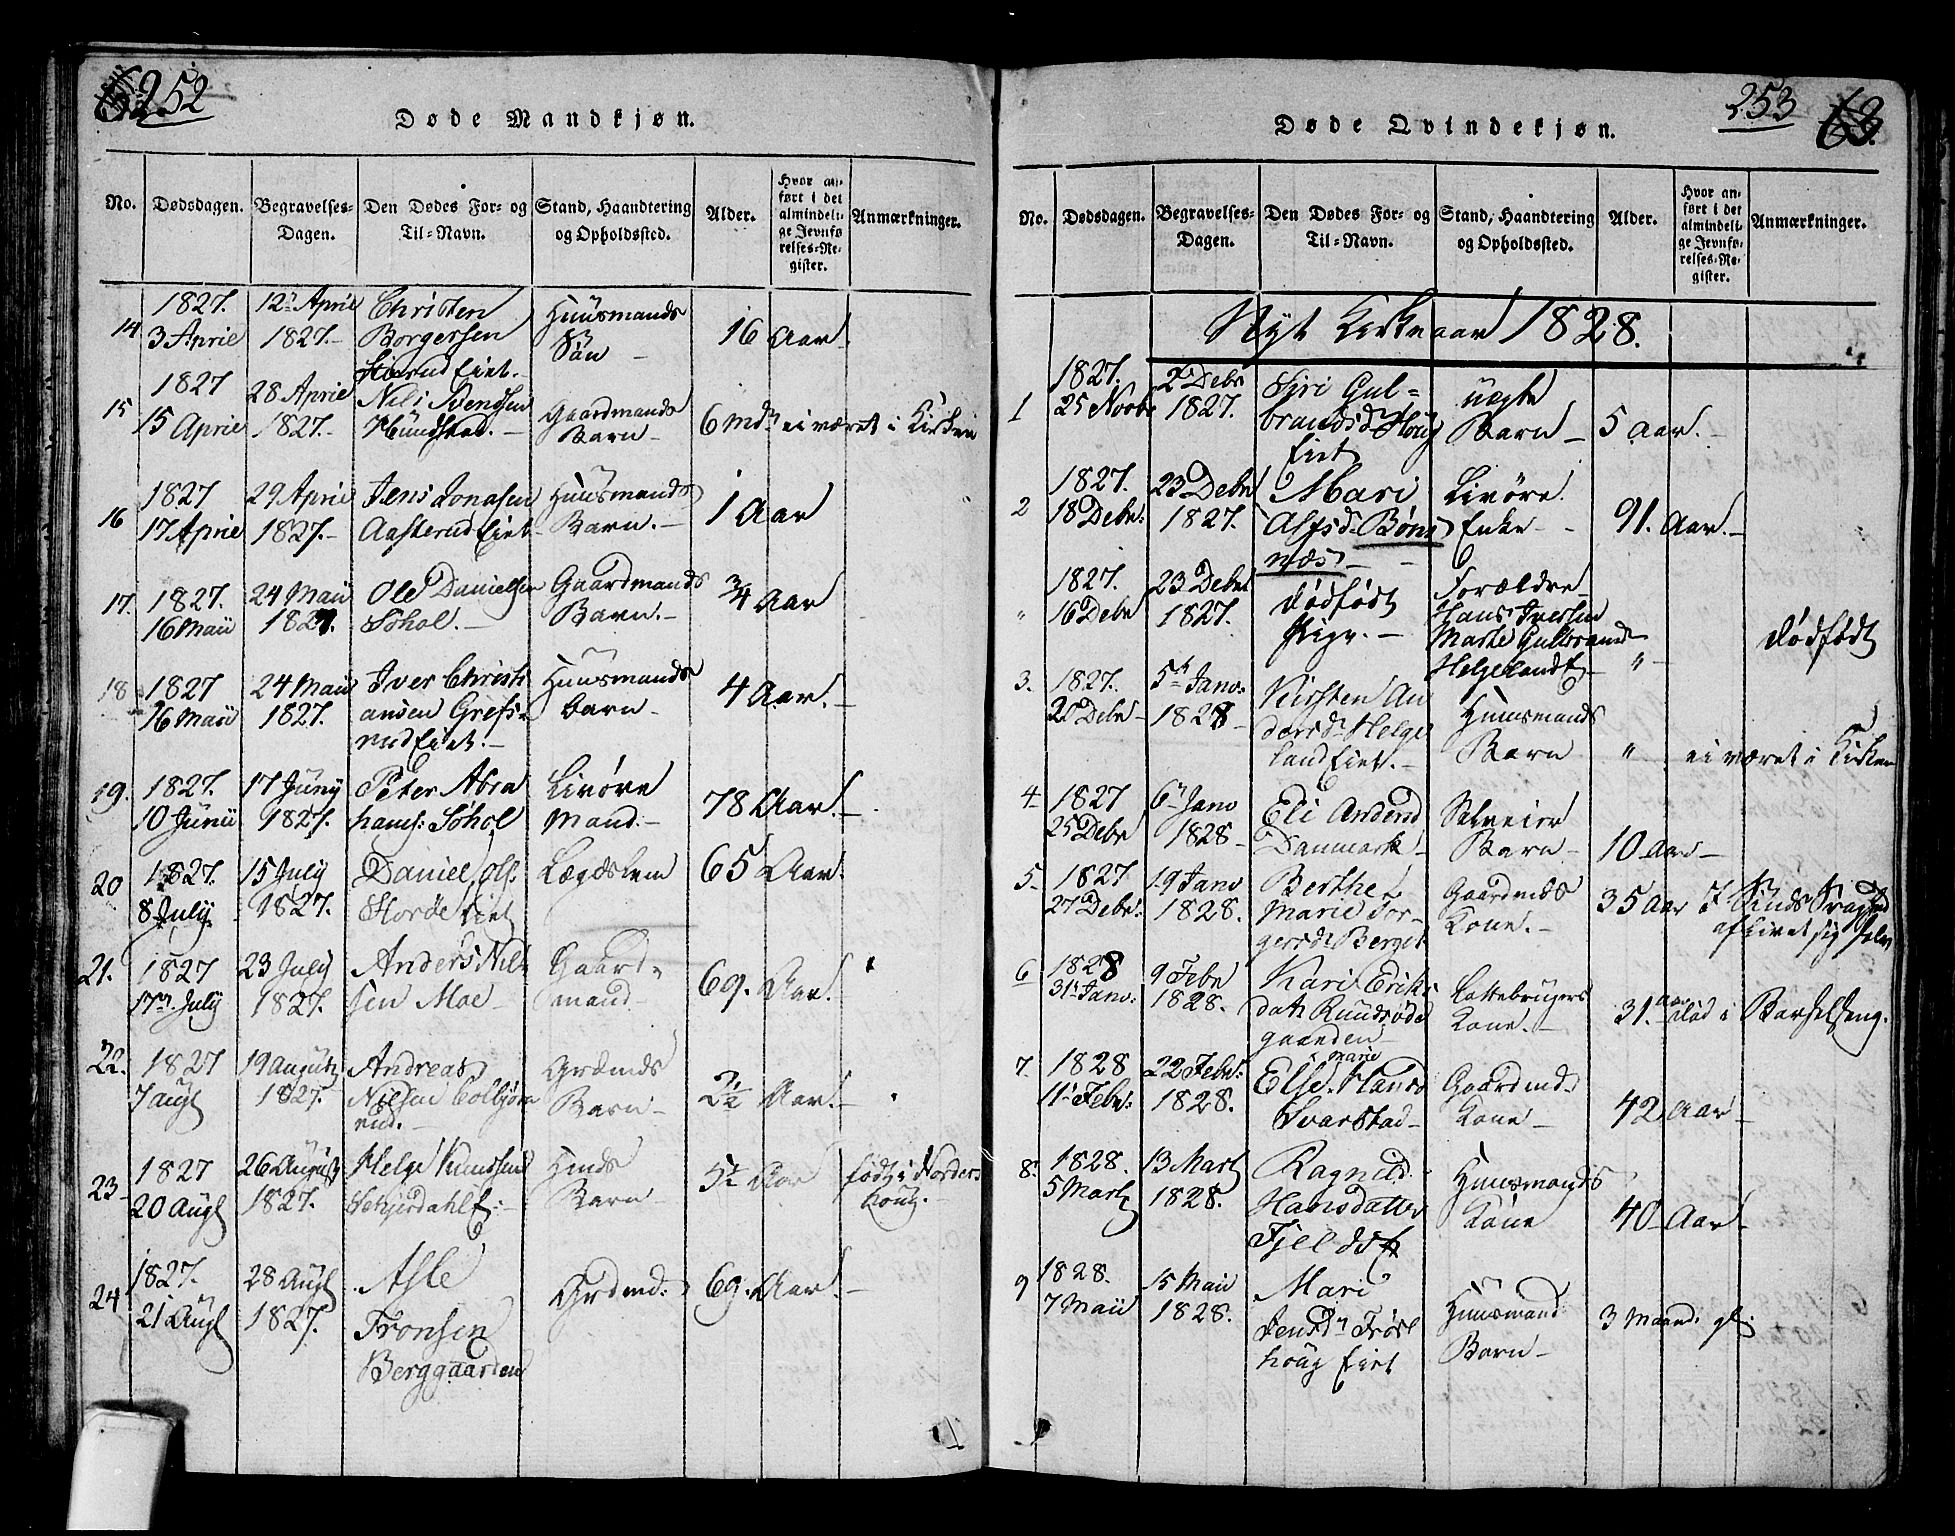 252
Døde Mandkjøn.
No.
Dødsdagen.
Begravelses-
Dagen.
Den Dødes For- og
Til-Navn.
Stand, Haandtering
og Opholdssted.
Alder.
Hvor an-
ført i det
almindeli-
ge Jevnfø-
relses-Re-
gister.
Anmærkninger.
14
1827.
3 April
12 April
1827.-
Christen
Borgersen
Eiet.-
Huusmands
Søn -
16 Aar.-
15
1827
15 April
28 April
1827.-
Nils Svendsen
Hundstad.-
Gaardmands
Barn-
6 Mdr
ei været i Kirken
16
1827
17 April
29 April
1827.-
Jens Jonasen
Aasterud Eiet-
Huusmands
Barn.-
1 Aar
17.
1827.
16 Maii
24 Maii
1827.
Ole Danielsen
Søhol.-
Gaardmands
Barn.-
3/4 Aar
18
1827
16 Maii
24 Maii
1827.
Iver Christi
ansen Grefs-
rud Eiet.-
Huusmands
barn-
4 Aar.-
19.
1827.
10 Junii
17 Juny
1827.
Peter Abra
hams: Søhol
Livøre
Mand.-
78 Aar.-
20
1827.
8 July
15 July
1827.
Daniel Ols:
Eiet
Lægdslem
65 Aar.
21.
1827
17 July
23 July
1827.
Anders Niel
sen Moe-
Gaard-
mand-
69. Aar.-
22.
1827
7 Augt
19 August
1827.
Andreas
Nielsen Colbjørn
rud.-
Grdmds
Barn-
2 1/2 Aar.-
23-
1827
20 Augt
26 August
1827.
Helge Knudsen
Schjerdahl E:-
Hmds
Barn-
5 1/2 Aar
født i Norder
houg.-
24
1827.
21 Augt
28 Augt
1827.
Asle
Tronsen
Berggaarden
Grdmd:
69. Aar.-
253
63.
Døde Qvindekjøn.
No.
Dødsdagen.
Begravelses-
Dagen.
Den Dødes For- og
Til-Navn.
Stand, Haandtering
og Opholdssted.
Alder.
Hvor an-
ført i det
almindeli-
ge Jevnfø-
relses-Re-
gister.
Anmærkninger.
Nyt Kirkeaar 1828.
1
1827.
25 Novbr
2 Debr
1827.
Siri Gul-
brandsd Houg
Eiet
uægte
Barn-
5 Aar.-
2
1827.
18 Debr:
23 Debr
1827.
Mari
Alfsd- Bøns
næs-
Livøre
Enke-
91. Aar.-
"
1827.
16 Debr
23 Debr
1827.
dødfødt
Pige.-
Forældre
Hans Iversen
Marte Gulbrands
Helgeland E-
"
dødfødt
3.
1827.
20 Debr-
5 Janv:
1828-
Kirsten An
dersd- Helge
land Eiet.-
Huusmands
Barn
"
ei været i Kirken
4
1827
25 Debr
6 Janv
1828-
Eli Andersd
Danmark-
Selveier
Barn-
10 Aar-
5.
1827
27 Debr:
19 Janv
1828.
Berthe
Marie Tor-
gersd Berget
Gaardmds
Kone.-
35 Aar
I Sinds Svaghed
aflivet sig selv
6
1828
31 Janv:
9 Febr
1828.
Kari Eriks
datr
gaarden-
Kone.-
31. aar
død i Barselseng.
7.
1828
11 Febr:
22 Febr:
1828.
Else Marie Hansd
Svarstad-
Gaardmd:
Kone-
42 Aar-
8.
1828.
5 Marts
13 Marts
1828.
Ragnild
Hansdatter
Fjelds E
Huusmands
Kone
40 Aar-
9
1828.
7 Maii
15 Maii
1828.
Mari
Jensdr Frøs
houg Eiet
Huusmand
Barn-
3 Maand: gl: